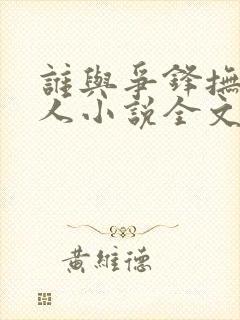 誰與爭鋒撫
人小說全文
黃維德